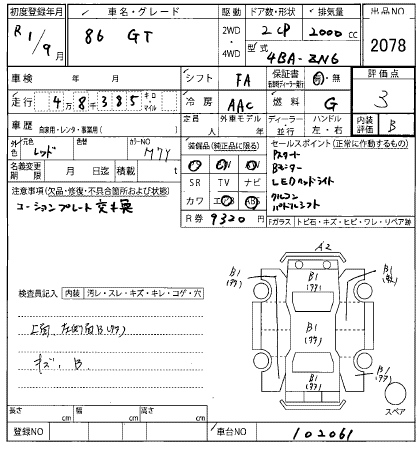 初度登録年月 車名・グレード 駆動 ドア数・形状 排気量 出品NO
R1/9月 86 GT 2WD・4WD 2 CP 2000 cc 2078
型式 4BA-ZN6
車検 年 月 シフト FA 保証書 有・無 評価点
走行 4万8千385 キロ・マイル 冷房 AAC 燃料 G 3
車歴 自家用・レンタ・事業用( ) 定員 人 外車モデル 年 ディーラー 並行 ハンドル 左・右 内装 B
外色 元色 レッド 色替 カラーNO M7Y 装備品(純正品に限る) セールスポイント(正常に動作するもの)
名義変更期限 月 日 積載 t SR TV ナビ
注意事項(欠品・修復・不具合箇所および状態) カワ エアB ABS
コーションプレート交換 R券 9320 円
Pスタート
Bモニター
LEDヘッドライト
クルコン
パドルシフト
Fガラス トビ石・キズ・ヒビ・ワレ・リペア跡
A2
検査員記入 内装 汚レ・スレ・キズ・キレ・コゲ・穴
B1
キズ、B
スペア
長さ cm 幅 cm 高さ cm
登録NO 車台NO 102061